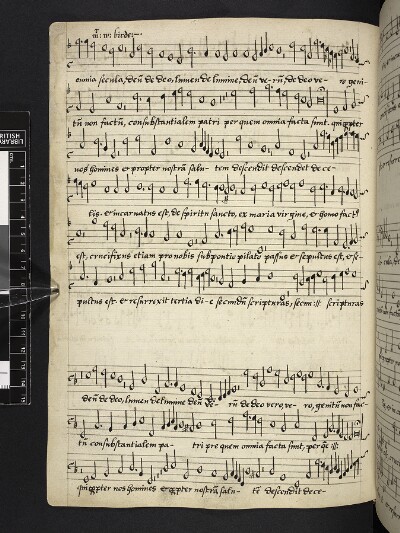 mr: w: birde:—
omnia secula, deū de deo, lumen de lumine, deū ve- rū, de deo ve- ro geni-
tū non factū, consubstantialem patri per quem omnia facta sunt. qui ꝓpter
nos homines et propter nostrā salu- tem descendit descendet de ce-
lis. et incarnatus est, de spiritu sancto, ex maria virgine, et homo fact9
est, crucifixus etiam pro nobis sub pontio pilato passus et sepultus est, et se-
pultus est. et resurrexit tertia di- e secundū scripturas, secun :||: scripturas
deū de deo, lumen de lumine deū de- rū de deo vero, ve- ro, genitū non fac-
tū consubstantialem pa- tri pre quem omnia facta sunt, per qē :||:
qui ꝓpter nos homines et ꝓpter nostrā salu- tē descendit de ce-
BRITISH
LIBRARY